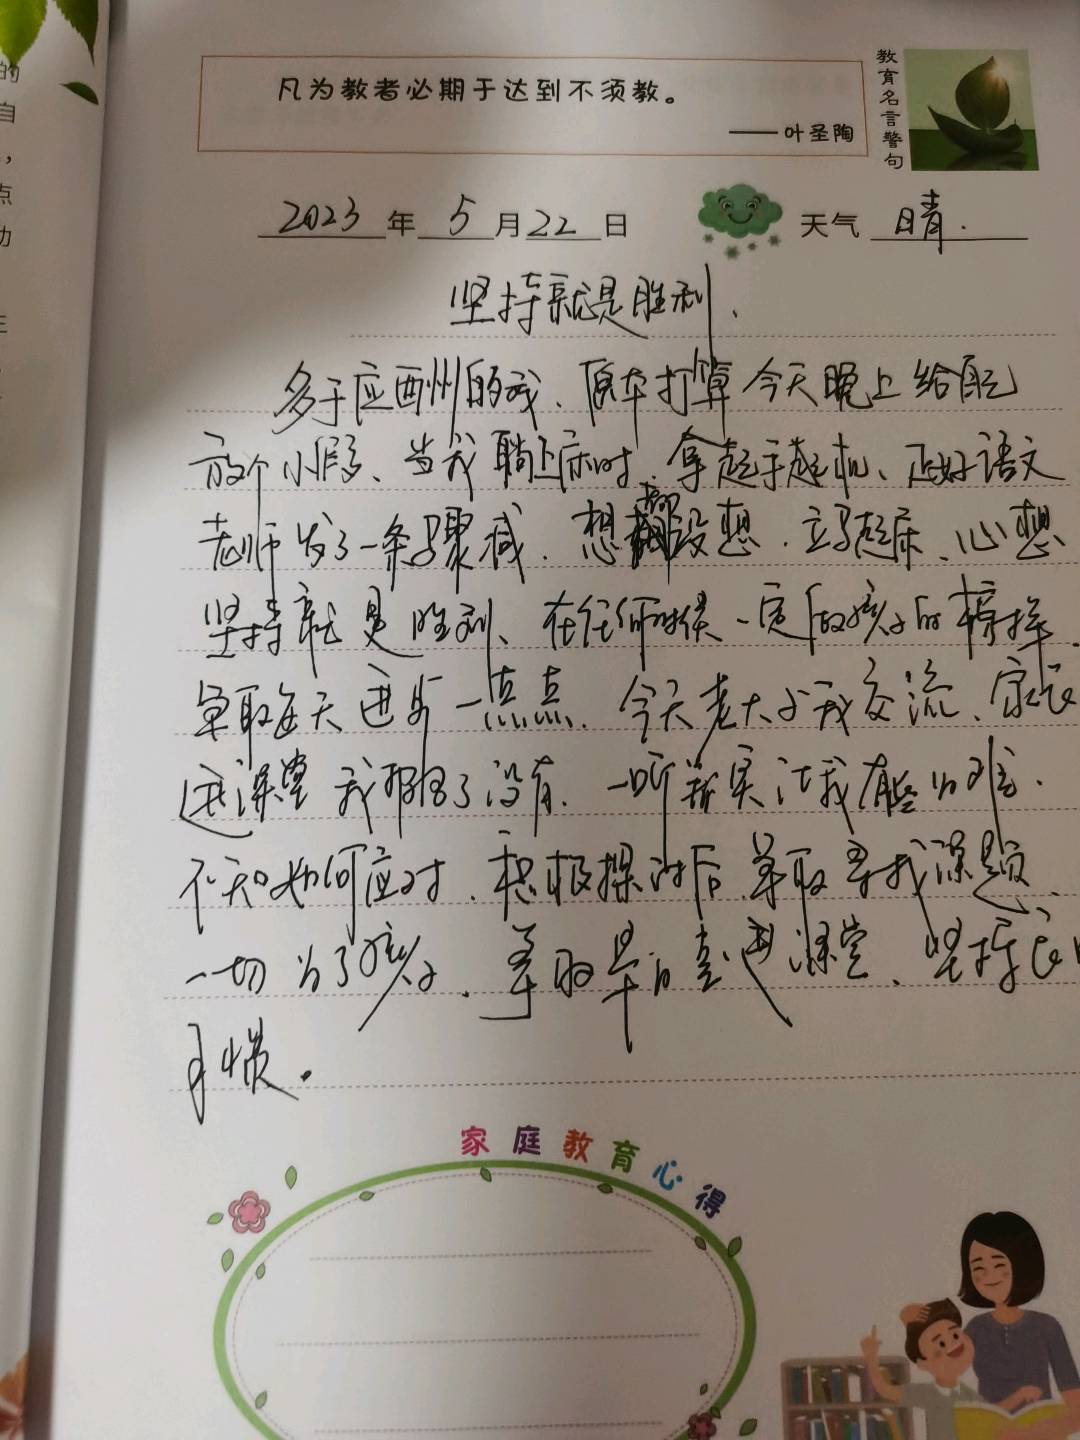 的
自
，
点
动
凡为教者必期于达到不须教。
——叶圣陶
教育名言警句
2023年5月22日 天气 晴.
坚持就是胜利、
多于应酬的我、原本打算今天晚上给自己
放个小假、当我躺上床时、拿起手机、正好语文
老师发了一条、想都没想、立马起床、心想
坚持就是胜利、在任何时候一定做孩子的榜样、
争取每天进步一点点、今天老大与我交流、家长
进课堂我报名了没有、一听着实让我有些为难.
不知如何应对、积极探讨后、争取寻找课题、
一切为了孩子、争取早日走进课堂、坚持
习惯。
家庭教育心得